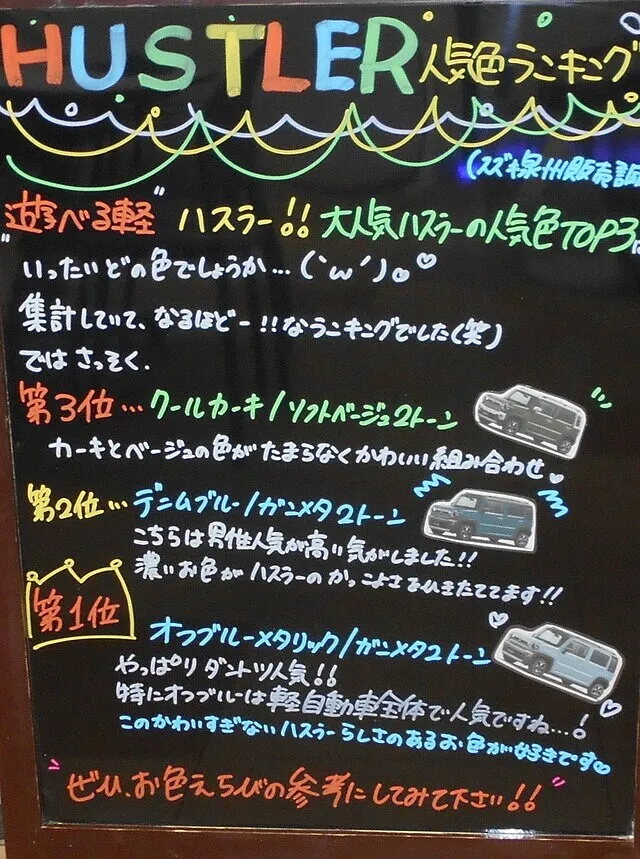 HUSTLER人気色ランキング
(スズキ泉州販売調
"遊べる軽" ハスラー!! 大人気ハスラーの人気色TOP3は
いったいどの色でしょうか…(`ω´)。♡
集計していて、なるほどー!!なランキングでした(笑)
では さっそく.
第3位…クールカーキ/ソフトベージュ2トーン
カーキとベージュの色がたまらなくかわいい組み合わせ♡
第2位…デニムブルー/ガンメタ2トーン
こちらは男性人気が高い気がしました!!
濃いお色がハスラーのかっこよさをひきたててます!!
第1位
オフブルーメタリック/ガンメタ2トーン
やっぱりダントツ人気!!
特にオフブルーは軽自動車全体で人気ですね…!
このかわいすぎないハスラーらしさのあるお色が好きです♡
"ぜひ、お色えらびの参考にしてみて下さい!!"